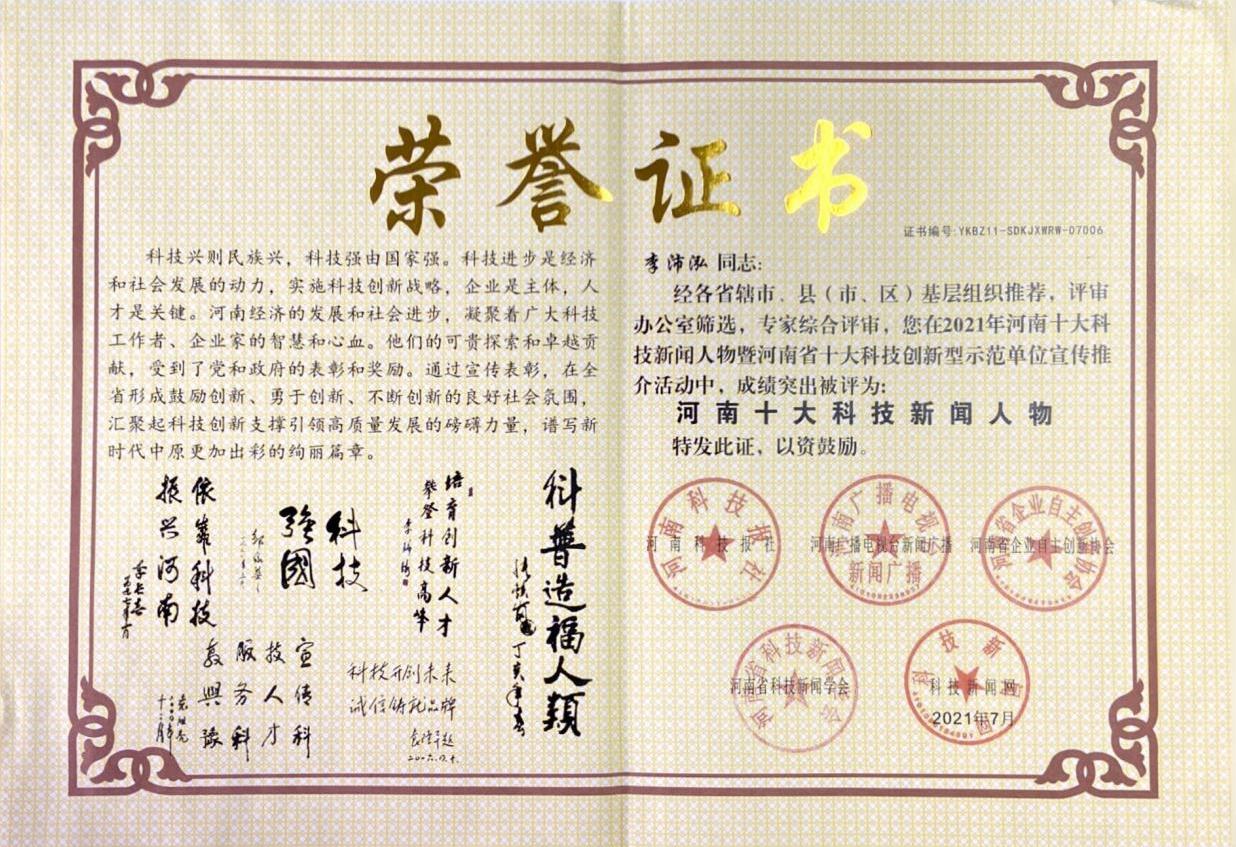 荣誉证书
证书编号:YKBZ11-SDKJXWRW-07006
科技兴则民族兴，科技强由国家强。科技进步是经济
和社会发展的动力，实施科技创新战略，企业是主体，人
才是关键。河南经济的发展和社会进步，凝聚着广大科技
工作者、企业家的智慧和心血。他们的可贵探索和卓越贡
献，受到了党和政府的表彰和奖励。通过宣传表彰，在全
省形成鼓励创新、勇于创新、不断创新的良好社会氛围，
汇聚起科技创新支撑引领高质量发展的磅礴力量，谱写新
时代中原更加出彩的绚丽篇章。
科普造福人类
丁亥年春
培育创新人才
攀登科技高峰
科技
强國
依靠科技
振兴河南
宣传科
技人才
服务科
教興豫
科技开创未来
诚信铸就品牌
李沛泓 同志：
经各省辖市、县（市、区）基层组织推荐，评审
办公室筛选，专家综合评审，您在2021年河南十大科
技新闻人物暨河南省十大科技创新型示范单位宣传推
介活动中，成绩突出被评为:
河南十大科技新闻人物
特发此证，以资鼓励。
河南科技报社
河南科技报社
河南广播电视台新闻广播
新闻广播
河南省企业自主创新协会
河南省企业自主创新协会
河南省科技新闻学会
河南省科技新闻学会
科技新闻网
科技新闻网
2021年7月